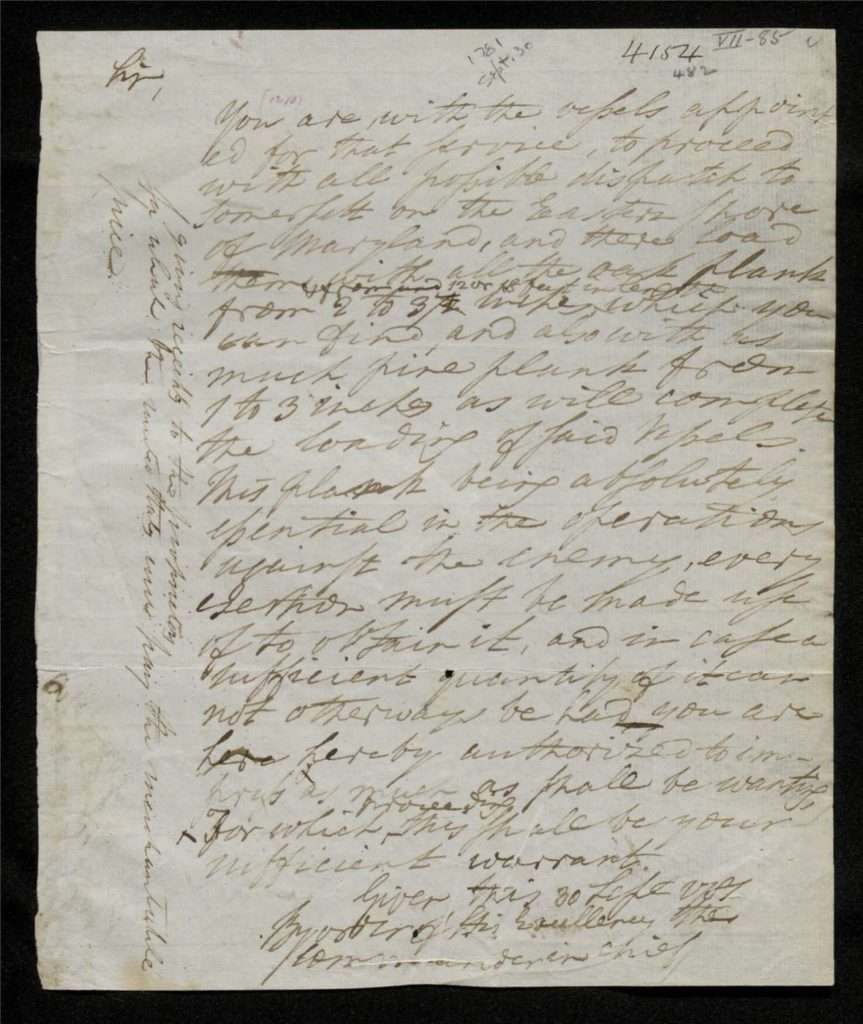 1781
Sept. 30
4154
VII-85
482
Sir,
You are, with the vessels appoint
ed for that service, to proceed
with all possible dispatch to
Somersett on the Eastern Shore
of Maryland, and there load
them with all the oak plank
12 or 15 feet in length
from 2 to 3½ which you
can find, and also with as
much pine plank from
1 to 3 inches as will complete
the loading of said Vessels.
This plank being absolutely
essential in the operations
against the enemy, every
exertion must be made use
of to obtain it, and in case a
sufficient quantity of it can
not otherways be had you are
here hereby authorized to im-
press as much as shall be wanting,
proceeding
x For which, this shall be your
sufficient warrant
Given this 30 Sept 1781
By order of His Excellency the
Commander in chief
giving receipts to the proprietors
for which the united States will pay the merchantable
price.